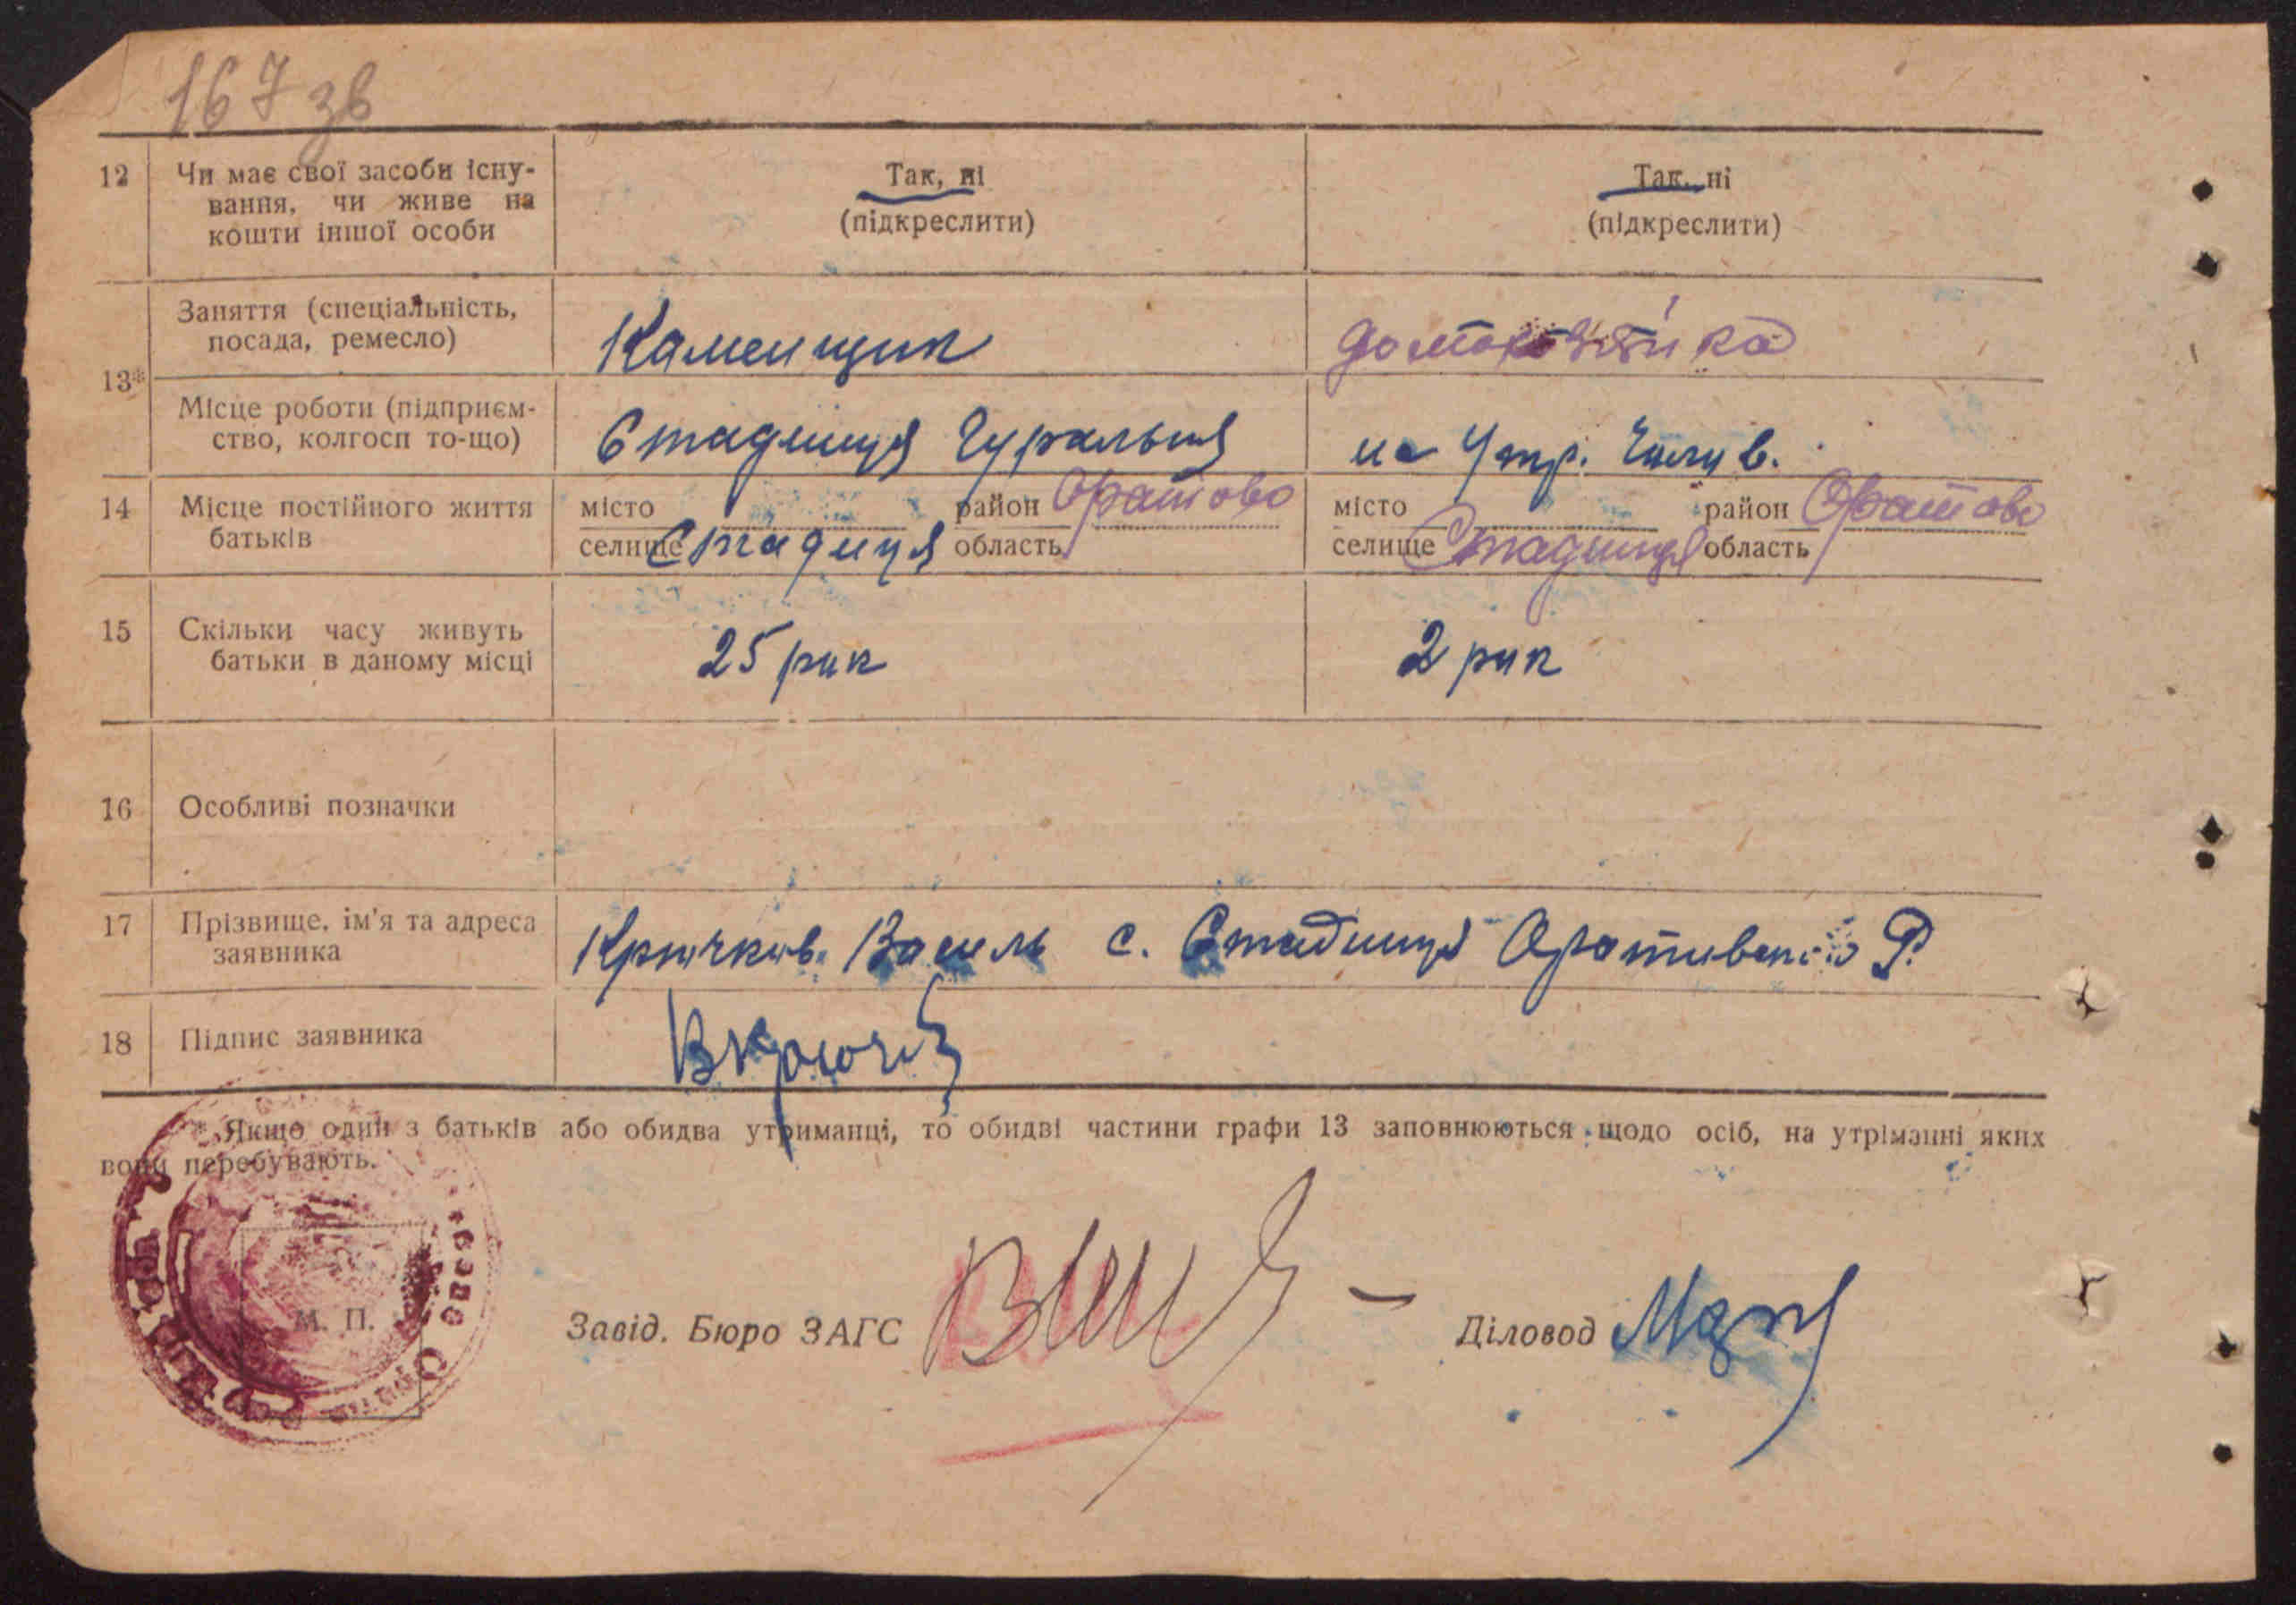 167 зв
12 Чи має свої засоби існу- Так, ні Так, ні
вання, чи живе на (підкреслити) (підкреслити)
кошти іншої особи
13* Заняття (спеціальність, Каменщик домохозяйка
посада, ремесло)
Місце роботи (підприєм- Стадниця Гуральня на Утр.
ство, колгосп то-що)
14 Місце постійного життя місто район Оратово місто район Оратово
батьків селище Стадниця область селище Стадниця область
15 Скільки часу живуть 25 рик 2 рик
батьки в даному місці
16 Особливі позначки
17 Прізвище, ім'я та адреса Крючков Василь с. Стадниця Р.
заявника
18 Підпис заявника
* Якщо один з батьків або обидва утриманці, то обидві частини графи 13 заповнюються щодо осіб, на утріманні яких
вони перебувають.
М. П.
Завід. Бюро ЗАГС Діловод